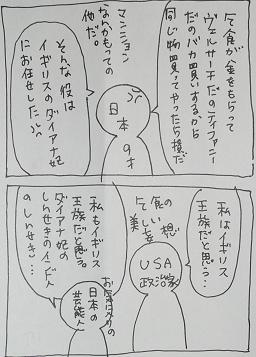 乞食が金をもらって
ヴェルサーチだのティファニー
だのバカ買いするから
同じ物買ってやったら機だ
マンション
なんかもっての
他だ。
そんな役は
イギリスのダイアナ妃
にお任せしたい
日本
9才
私はイギリス
王族だと思う…
乞食の
いし妄想
USA
政治家
私もイギリス
王族だと思う。
ダイアナ妃の
しんせきの
のしんせき…
お気に入りの
日本の
芸能人